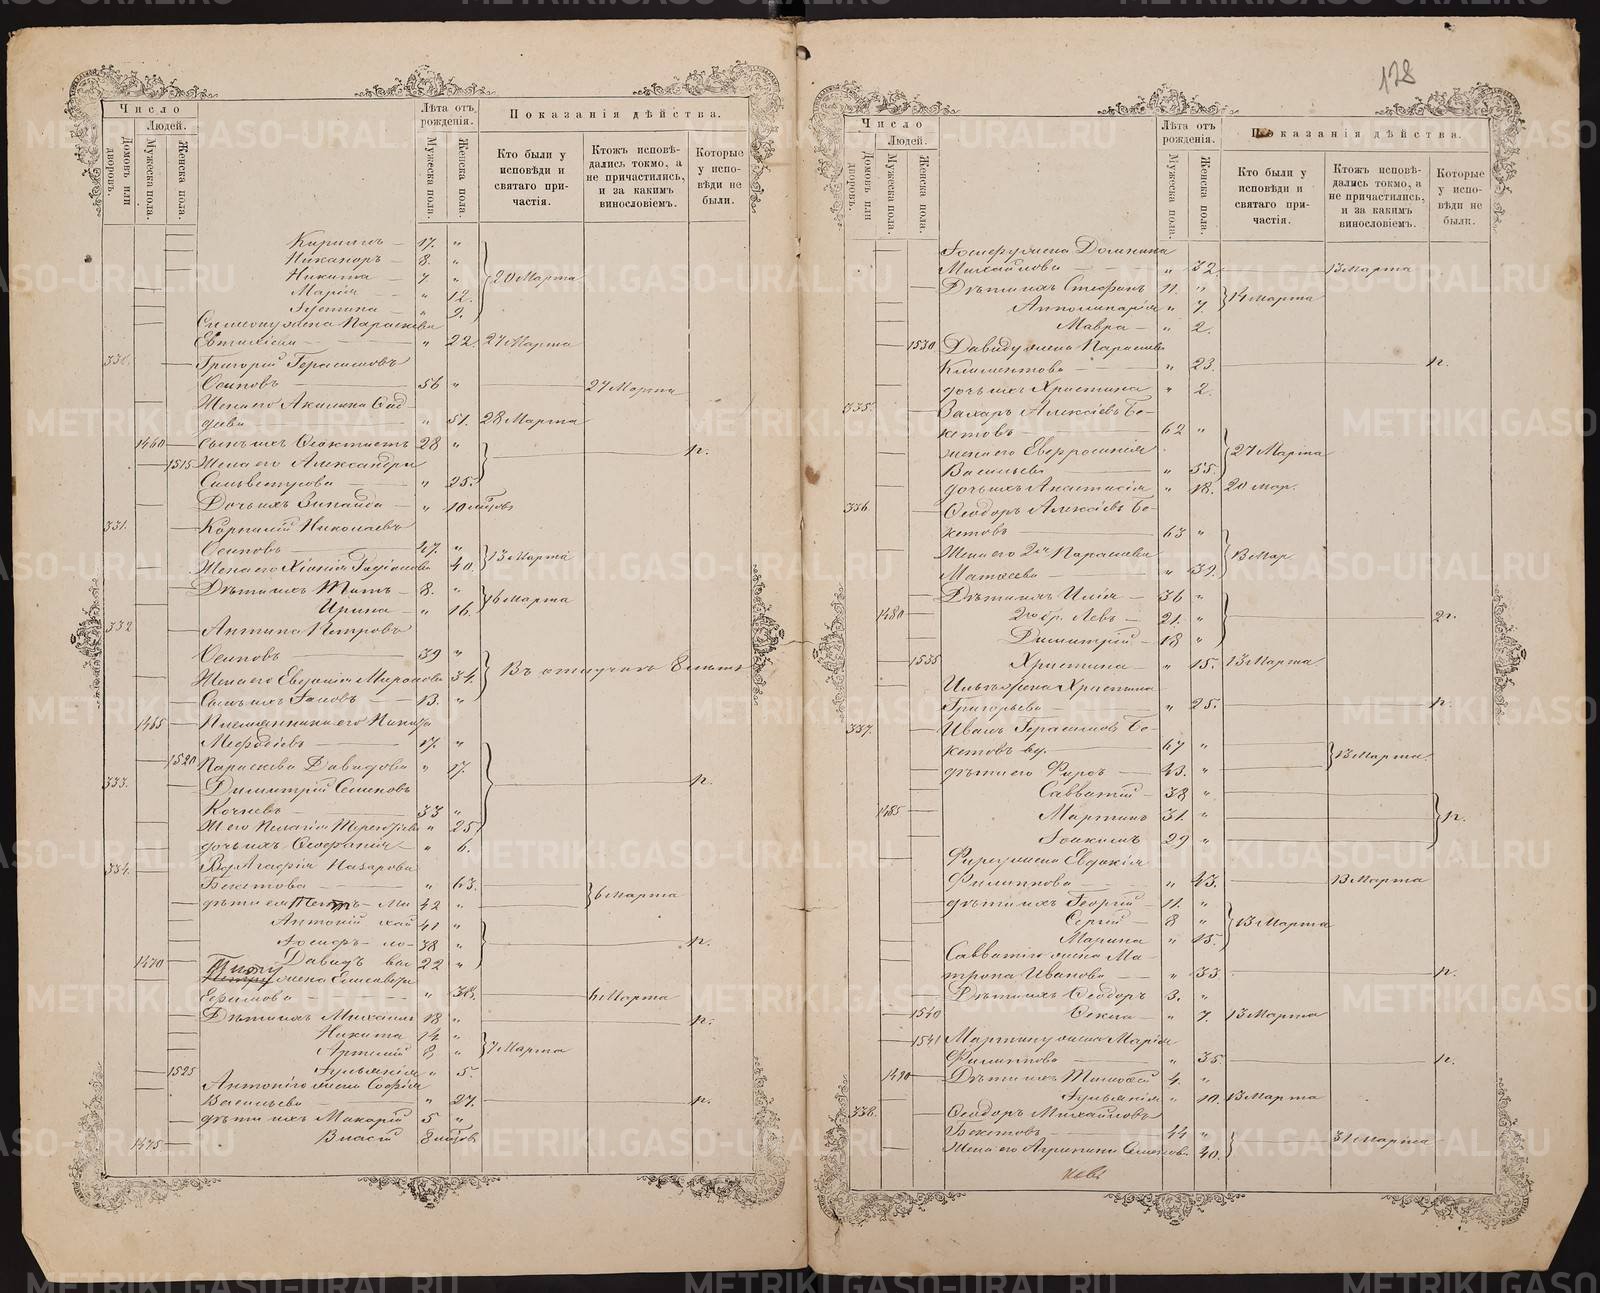 128
Число
Людей.
Домовъ или дворовъ.
Мужеска пола.
Женска пола.
Лѣта отъ рожденія.
Мужеска пола.
Женска пола.
Показанія дѣйства.
Кто были у исповѣди и святаго причастія.
Ктожъ исповѣдались токмо, а не причастились, и за какимъ винословіемъ.
Которые у исповѣди не были.
Кириллъ — 17. "
Никаноръ — 8. "
Никита — 7 " 20 Марта
Марія — " 12.
Іустина — " 2.
Симеону жена Параскева
22. 27 Марта
Григорій Герасимовъ
Осиповъ — 56 " 27 Марта
Жена его Акилина
" 51. 28 Марта
1460 Сынъ ихъ Ѳеоктистъ 28 "
1515 Жена его Александра п.
Сильвестрова — " 25.
Дочь ихъ Зинаида — " 10 мѣсяц.
331. Корнилій Николаевъ
Осиповъ — 47. " 13 Марта
Жена его 40.
Дѣти ихъ Титъ — 8. "
Ирина — " 16. 16 Марта
332 Антипа Петровъ
Осиповъ — 39 "
Жена его Евдокія Миронова 34. Въ отлучкѣ 8 лѣтъ
Сынъ ихъ Іаковъ — 13. "
1465 Племянники его
Меѳодіевъ — 17. "
1520 Параскева Давидова " 17.
333. Димитрій Семеновъ п.
Кочневъ — 33 "
Ж его Пелагія Терентіева " 25
дочь ихъ Стефанія — " 6.
334. Вд. Агафія Назарова
Бекетова — " 63. 6 Марта
дѣти ея Петръ — Ми 42 "
Антоній хай 41 "
Іосифъ — ло 38 " п.
1470 Давидъ вы 22 "
Петру жена Елисавета
Ефимова — " 38. 6 Марта
Дѣти ихъ Михаилъ 18 " п.
Никита 14 "
Артемій 8 " 7 Марта
1525 Іульянія " 5.
Антонію жена Софія
Васильева — " 27. п.
дѣти ихъ Макарій 5 "
1475 Власій 8 мѣсяц.
Число
Людей.
Домовъ или дворовъ.
Мужеска пола.
Женска пола.
Лѣта отъ рожденія.
Мужеска пола.
Женска пола.
Показанія дѣйства.
Кто были у исповѣди и святаго причастія.
Ктожъ исповѣдались токмо, а не причастились, и за какимъ винословіемъ.
Которые у исповѣди не были.
Іосифу жена Домника
Михайлова — " 32. 13 Марта
Дѣти ихъ Стефанъ 11. "
Апполинарія " 7. 14 Марта
Мавра — " 2.
1530 Давиду жена Параскева
Климентова — " 23. п.
дочь ихъ Христина " 2.
335. Захаръ Алексіевъ Бе-
кетовъ — 62 "
жена его Евфросинія 27 Марта
Васильева — " 55.
дочь ихъ Анастасія " 18. 20 Мар.
336. Ѳеодоръ Алексіевъ Бе-
кетовъ — 63 "
Жена его 2я Параскева 13 Мар
Матѳеева — " 39.
Дѣти ихъ Илія — 36 "
1480 2го бр. Левъ — 21. " п.
Димитрій — 18 "
1535 Христина — " 15. 13 Марта
Ильѣ жена Христина
Григорьева — " 25. п.
337. Иванъ Герасимовъ Бе-
кетовъ вд. — 67 " 13 Марта.
дѣти его Фирсъ — 43. "
Савватій — 38 "
1485 Мартинъ 31. " п.
Іоакимъ 29 "
Фирсу жена Евдокія
Филиппова — " 43. 13 Марта
дѣти ихъ Георгій — 11. "
Сергій — 8 " 13 Марта
Марина " 15.
Савватію жена Ма-
трона Иванова — " 33 п.
Дѣти ихъ Ѳеодоръ 3. "
1540 Ѳекла — " 7. 13 Марта
1541 Мартину жена Марія
Филиппова — " 35 п.
1490 Дѣти ихъ Тимоѳей 4. "
Іульянія " 10. 13 Марта
338. Ѳеодоръ Михайловъ
Бекетовъ — 44 " 31 Марта
Жена его Агрипина Семенова " 40.